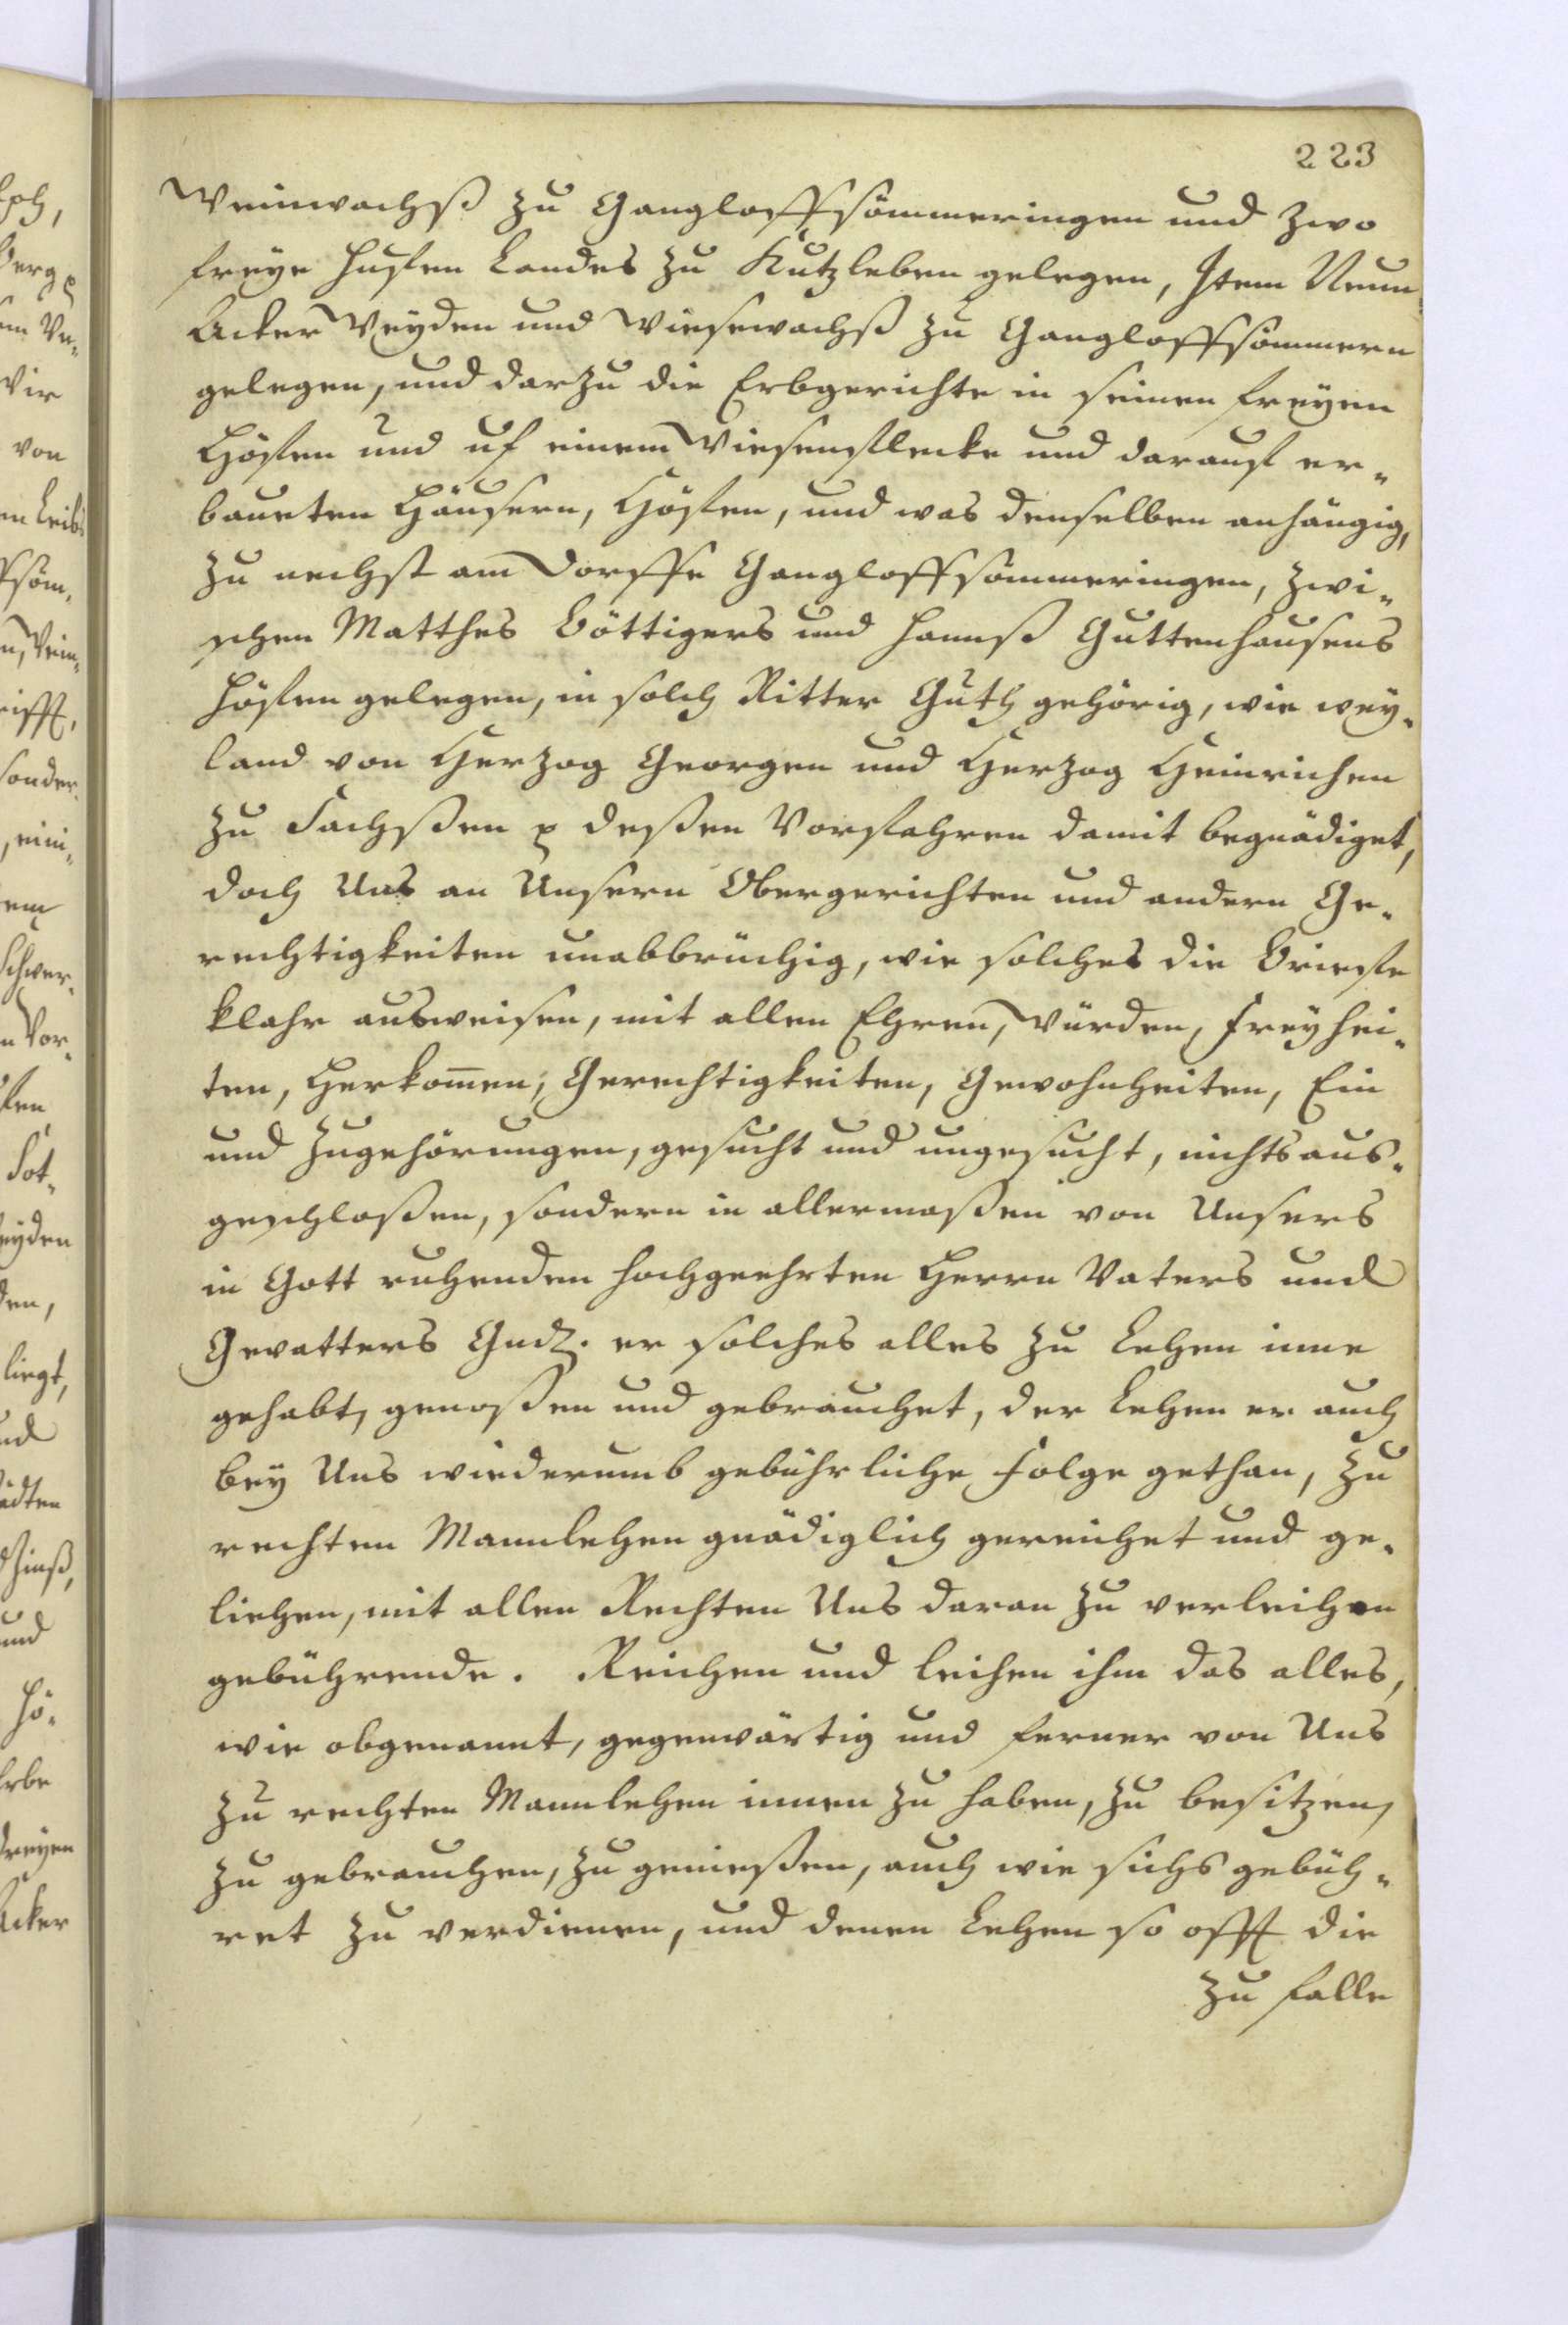 223
Weinwachß zu Gangloffsömmeringen und zwo
freye Hufen Landes zu Kutzleben gelegen, Item Neun
Acker Weyden und Wiesewachß zu Gangloffsömmern
gelegen, und darzu die Erbgerichte in seinen freyen
Höfen und uf einem Wiesenflecke und darauf er-
baueten Häusern, Höfen, und was denselben anhängig,
zu nechst am Dorffe Gangloffsömmeringen, zwi-
schen Matthes Böttigers und Hannß Guttenhausens
Höfen gelegen, in solch Ritter Guth gehörig, wie wey-
land von Herzog Georgen und Herzog Heinrichen
zu Sachßen p deßen Vorfahren damit begnädiget,
doch Uns an Unsern Obergerichten und andern Ge-
rechtigkeiten unabbrüchig, wie solches die Briefe
klahr ausweisen, mit allen Ehren, Würden, Freyhei-
ten, Herkom̄en, Gerechtigkeiten, Gewohnheiten, Ein
und Zugehörungen, gesucht und ungesucht, nichts aus-
geschloßen, sondern in allermaßen von Unsers
in Gott ruhenden hochgeehrten Herrn Vaters und
Gevatters Gndz. er solches alles zu Lehen inne
gehabt, genoßen und gebrauchet, der Lehen er auch
bey Uns wiederumb gebührliche Folge gethan, zu
rechten Mannlehen gnädiglich gereichet und ge-
liehen, mit allen Rechten Uns daran zu verleihen
gebührende. Reichen und leihen ihm das alles,
wie obgenannt, gegenwärtig und ferner von Uns
zu rechten Mannlehen innen zu haben, zu besitzen,
zu gebrauchen, zu genießen, auch wie sichs gebüh-
ret zu verdienen, und denen Lehen so offt die
zu falle